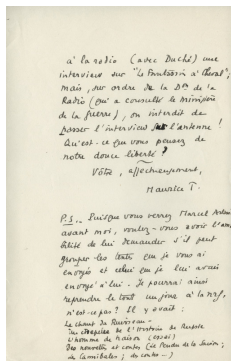 à la radio (avec Duché) une
interview sur "Le Fantassin à Cheval",
mais, sur ordre de la Don de la
Radio (qui a consulté le ministère
de la guerre), on interdit de
passer l'interview sur l'antenne !
Qu'est-ce que vous pensez de
notre douce liberté ?
Vôtre, affectueusement,
Maurice T.
P.S. Puisque vous verrez Marcel
avant moi, voulez-vous avoir l'ama
bilité de lui demander s'il peut
grouper les textes que je vous ai
envoyés et celui que je lui avais
envoyé à lui. Je pourrai ainsi
reprendre le tout un jour à la nrf,
n'est-ce pas ? Il y avait :
Le chant du Ruisseau
L'homme de raison (essai)
Des nouvelles et contes (Le Pendu de la
de cannibales ; des contes...)